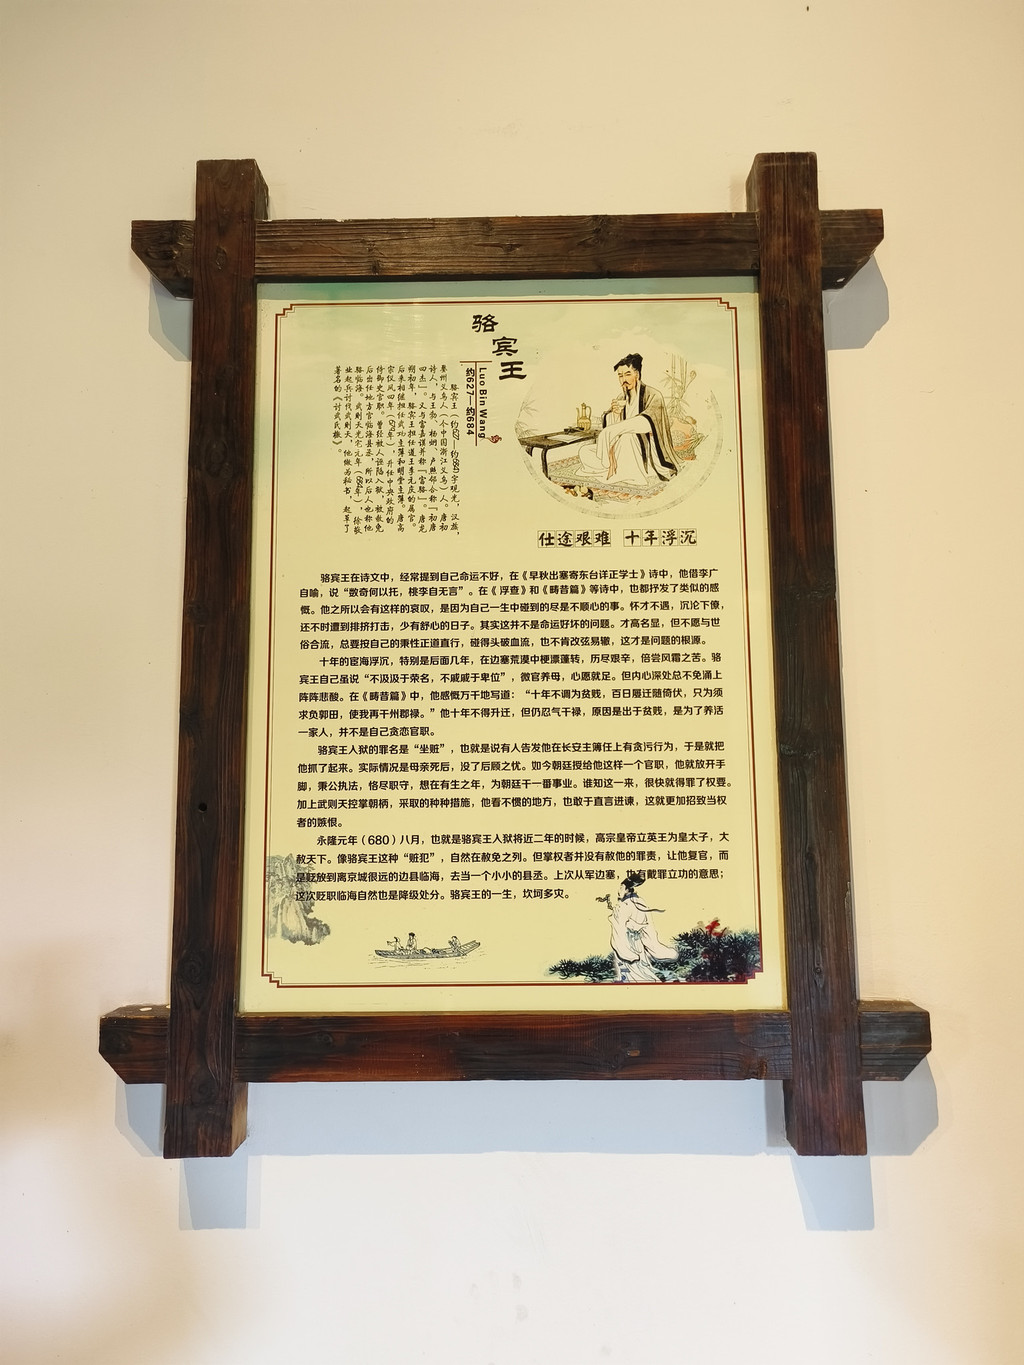 骆宾王
Luo Bin Wang
约627—约684
骆宾王（约627—约684）字观光，汉族，
婺州义乌人（今中国浙江义乌）人。唐初
诗人，与王勃、杨炯、卢照邻合称“初唐
四杰”。又与富嘉谟并称“富骆”。唐龙
朔初年，骆宾王担任道王李元庆的属官。
后来相继担任武功主簿和明堂主簿。唐高
宗仪凤四年（679年），升任中央政府的
侍御史官职。曾经被人诬陷入狱，被赦免
后出任地方官临海县丞，所以后人也称他
骆临海。武则天光宅元年（684年），徐敬
业起兵讨伐武则天，他做为秘书，起草了
著名的《讨武氏檄》。
仕途艰难 十年浮沉
骆宾王在诗文中，经常提到自己命运不好，在《早秋出塞寄东台详正学士》诗中，他借李广
自喻，说“数奇何以托，桃李自无言”。在《浮查》和《畴昔篇》等诗中，也都抒发了类似的感
慨。他之所以会有这样的哀叹，是因为自己一生中碰到的尽是不顺心的事。怀才不遇，沉沦下僚，
还不时遭到排挤打击，少有舒心的日子。其实这并不是命运好坏的问题。才高名显，但不愿与世
俗合流，总要按自己的秉性正道直行，碰得头破血流，也不肯改弦易辙，这才是问题的根源。
十年的宦海浮沉，特别是后面几年，在边塞荒漠中梗漂蓬转，历尽艰辛，倍尝风霜之苦。骆
宾王自己虽说“不汲汲于荣名，不戚戚于卑位”，微官养母，心愿就足。但内心深处总不免涌上
阵阵悲酸。在《畴昔篇》中，他感慨万千地写道：“十年不调为贫贱，百日屡迁随倚伏，只为须
求负郭田，使我再干州郡禄。”他十年不得升迁，但仍忍气干禄，原因是出于贫贱，是为了养活
一家人，并不是自己贪恋官职。
骆宾王入狱的罪名是“坐赃”，也就是说有人告发他在长安主簿任上有贪污行为，于是就把
他抓了起来。实际情况是母亲死后，没了后顾之忧。如今朝廷授给他这样一个官职，他就放开手
脚，秉公执法，恪尽职守，想在有生之年，为朝廷干一番事业。谁知这一来，很快就得罪了权要。
加上武则天控掌朝柄，采取的种种措施，他看不惯的地方，也敢于直言进谏，这就更加招致当权
者的嫉恨。
永隆元年（680）八月，也就是骆宾王入狱将近二年的时候，高宗皇帝立英王为皇太子，大
赦天下。像骆宾王这种“赃犯”，自然在赦免之列。但掌权者并没有赦他的罪责，让他复官，而
是贬放到离京城很远的边县临海，去当一个小小的县丞。上次从军边塞，也有戴罪立功的意思；
这次贬职临海自然也是降级处分。骆宾王的一生，坎坷多灾。